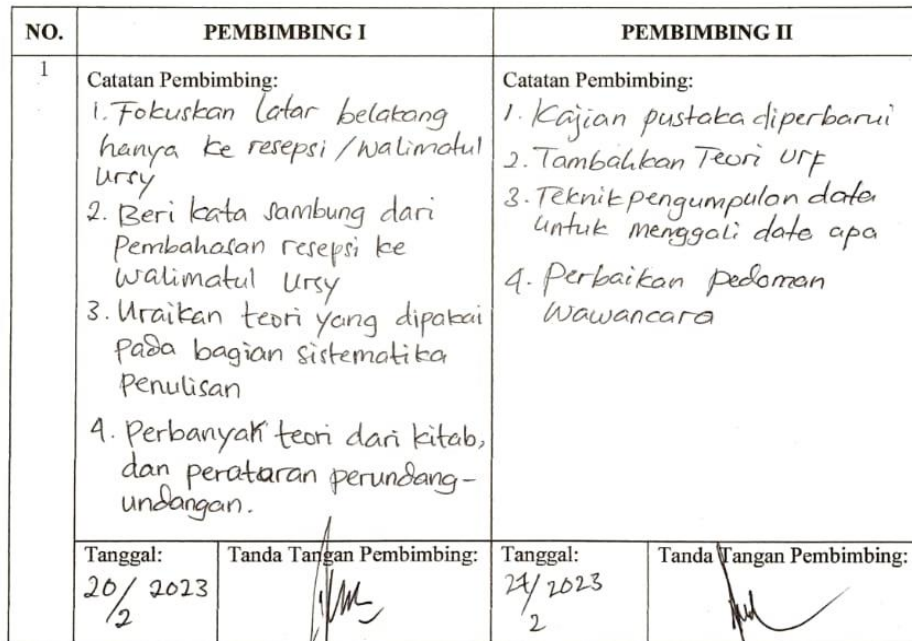 NO.
PEMBIMBING I
PEMBIMBING II
1
Catatan Pembimbing:
1. Fokuskan latar belakang
hanya ke resepsi / walimatul
ursy
2. Beri kata sambung dari
Pembahasan resepsi ke
walimatul ursy
3. Uraikan teori yang dipakai
pada bagian sistematika
Penulisan
4. Perbanyak teori dari kitab,
dan peraturan perundang-
undangan.
Catatan Pembimbing:
1. Kajian pustaka diperbarui
2. Tambahkan Teori Urf
3. Teknik pengumpulan data
untuk menggali data apa
4. Perbaikan pedoman
Wawancara
Tanggal:
20/2 2023
Tanda Tangan Pembimbing:
Tanggal:
24/2 2023
Tanda Tangan Pembimbing: